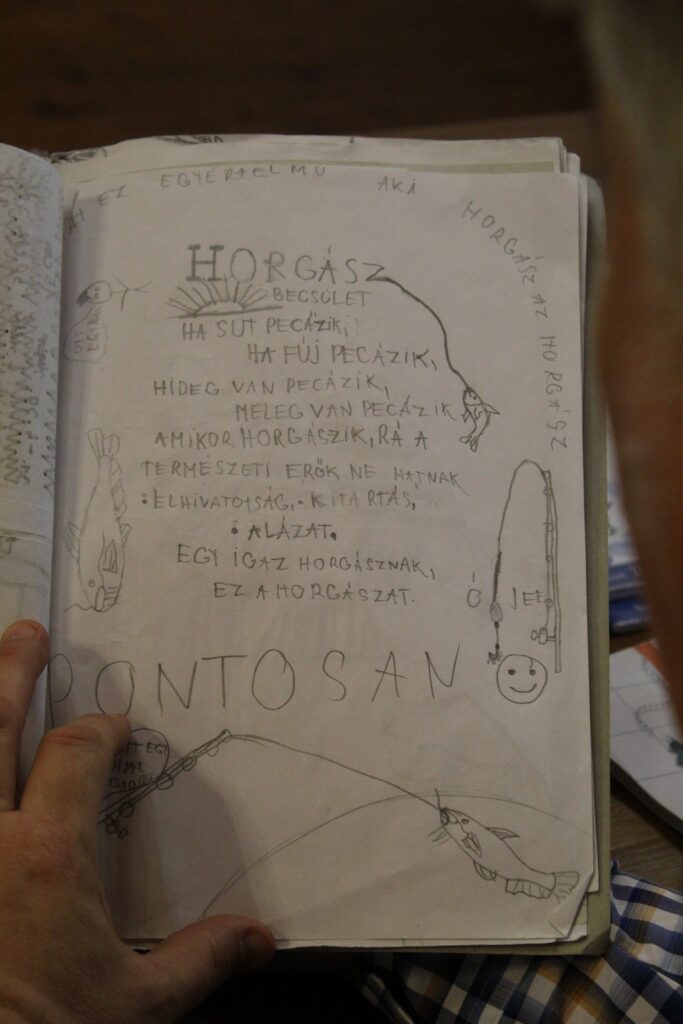 EZ EGYÉRTELMŰ AKI HORGÁSZ AZ HORGÁSZ
HORGÁSZ
BECSÜLET
HA SÜT PECÁZIK,
HA FÚJ PECÁZIK,
HIDEG VAN PECÁZIK,
MELEG VAN PECÁZIK
AMIKOR HORGÁSZIK, RÁ A
TERMÉSZETI ERŐK NE HATNAK
• ELHIVATOTSÁG, • KITARTÁS,
• ALÁZAT.
EGY IGAZ HORGÁSZNAK,
EZ A HORGÁSZAT.
Ó JEE
PONTOSAN